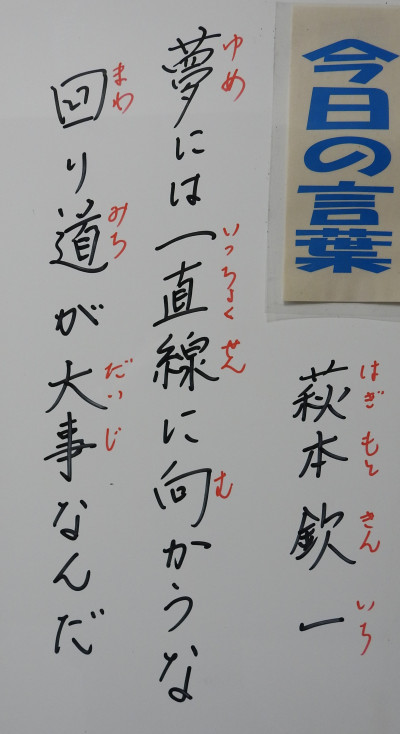 今日の言葉
萩本欽一
はぎもときんいち
夢には一直線に向かうな
ゆめ いっちょくせん む
回り道が大事なんだ
まわ みち だいじ